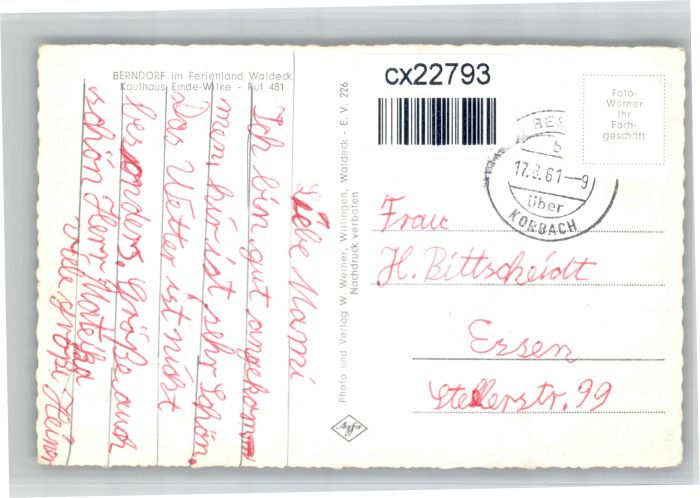 BERNDORF im Ferienland Waldeck
Kaufhaus Emde-Wilke - Ruf 481
Liebe Mami
Ich bin gut angekom
men, hir ist sehr schön,
Das Wetter ist nicht
besonders, Grüße auch
schön Herr
viele grüße
Photo und Verlag W. Werner, Willingen, Waldeck - E. V. 226
Nachdruck verboten
Agfa
cx22793
Foto-
Werner
Ihr
Fach-
geschäft
17.8.61-9
über
KORBACH
Frau
H. Bittscheidt
Essen
Stellerstr. 99